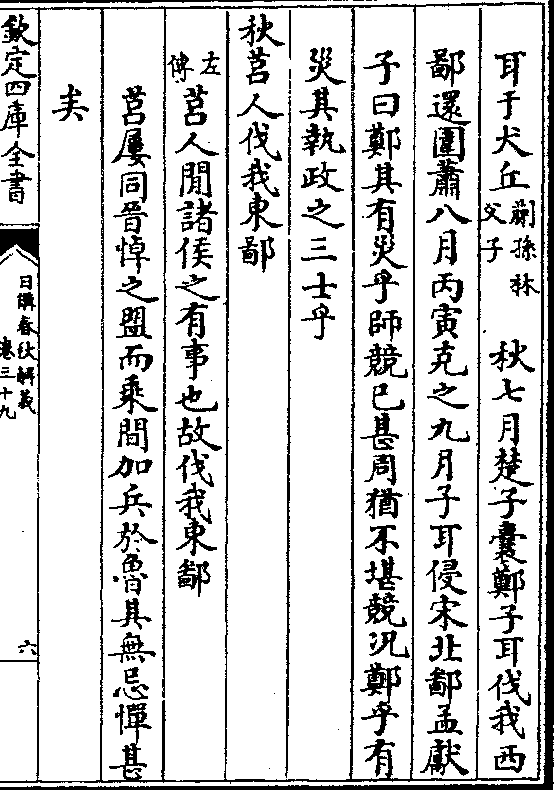 耳于犬丘蒯孫林父子　秋七月楚子囊鄭子耳伐我西
鄙還圍蕭八月丙寅克之九月子耳侵宋北鄙孟獻
子曰鄭其有災乎師競已甚周猶不堪競況鄭乎有
災其執政之三士乎
秋莒人伐我東鄙
左傳莒人閒諸侯之有事也故伐我東鄙
莒屢同晉悼之盟而乘間加兵於魯其無忌憚甚
矣
欽定四庫全書
日講春秋解義
卷三十九
六